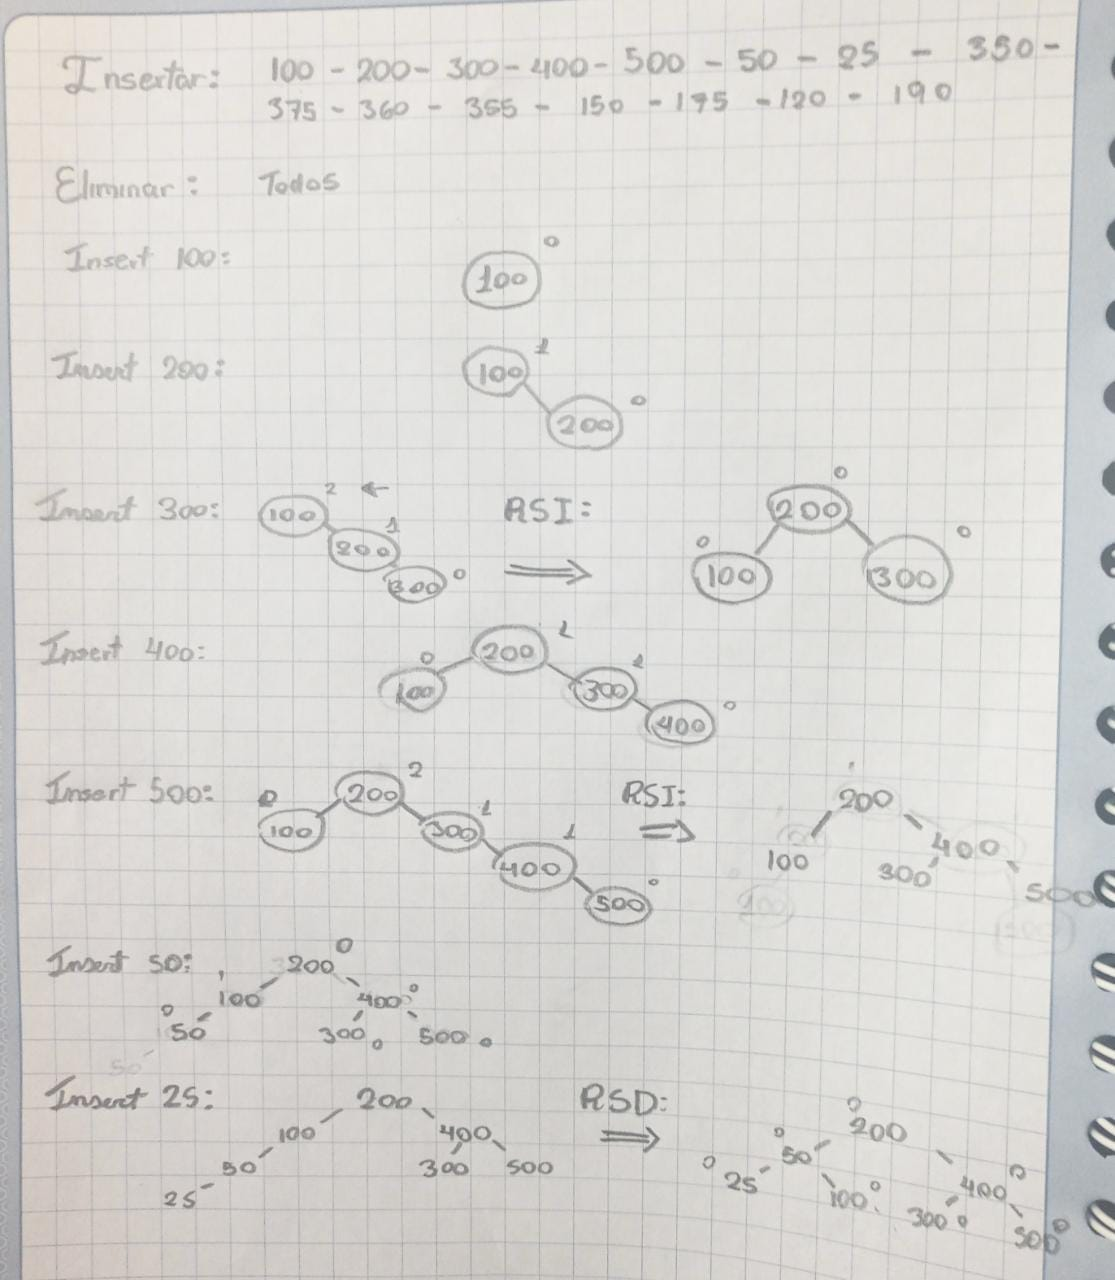 Insertar: 100 - 200 - 300 - 400 - 500 - 50 - 25 - 350 -
375 - 360 - 355 - 150 - 175 - 120 - 190
Eliminar: Todos
Insert 100:
0
100
Insert 200:
1
100
0
200
Insert 300:
2 ←
100
1
200
0
300
RSI:
⇒
0
200
0
100
0
300
Insert 400:
1
200
0
100
1
300
0
400
Insert 500:
2
200
0
100
1
300
1
400
0
500
RSI:
⇒
200
100
400
300
500
Insert 50:
0
200
100
400 0
0
50
300 0
500 0
Insert 25:
200
100
400
50
300
500
25
RSD:
⇒
0
200
0
50
0
25
100 0
0
400
300 0
500 0